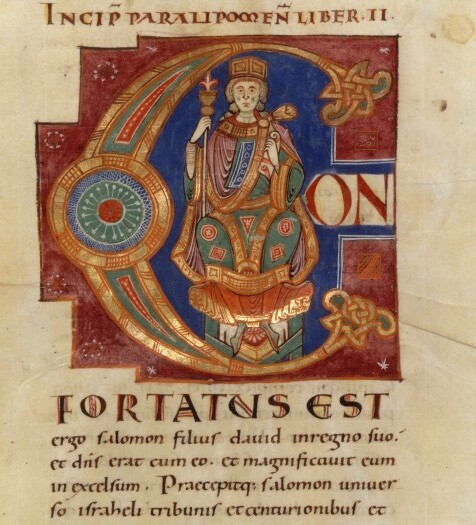 INCIP̅ PARALIPOMEÑ LIBER · II ·
CON
FORTATUS EST
ergo salomon filius dauid inregno suo.
et dn̅s erat cum eo. et magnificauit eum
in excelsum. Praecepitq; salomon uniuer
so israheli tribunis et centurionibus et